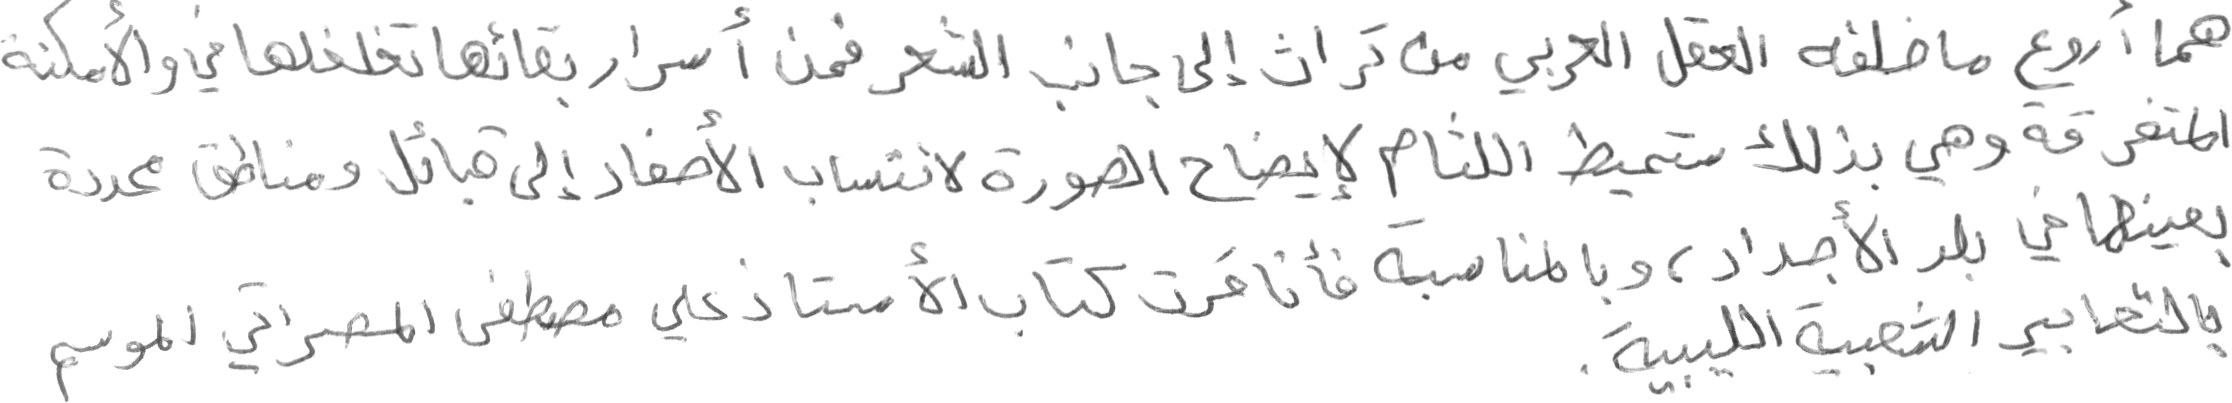 هما أروع ما خلفه العقل العربي من تراث إلى جانب الشعر فمن أسرار بقائها تغلغلها في والأمكنة
المتفرقة وهي بذلك ستميط اللثام لإيضاح الصورة لانتساب الأحفاد إلى قبائل ومناطق محددة
بعينها في بلد الأجداد، وبالمناسبة فأنا قرت كتاب الأستاذ علي مصطفى المصراتي الموسم
بالتعابير الشعبية الليبية.